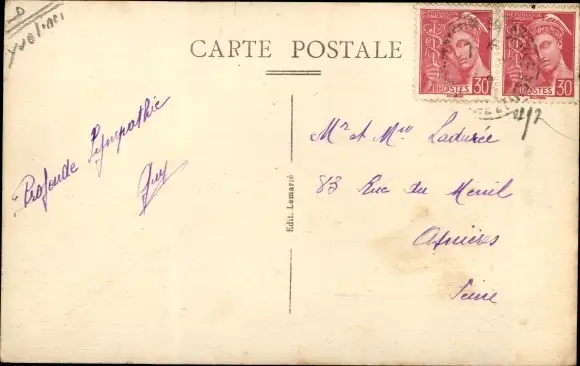 D
Yvelines
CARTE POSTALE
REPUBLIQUE FRANÇAISE
POSTES 30
REPUBLIQUE FRANÇAISE
POSTES 30
Profonde Sympathie
Guy
Edit. Lemarié
Mr et Mme Ladurée
83 Rue du Menil
Asnières
Seine